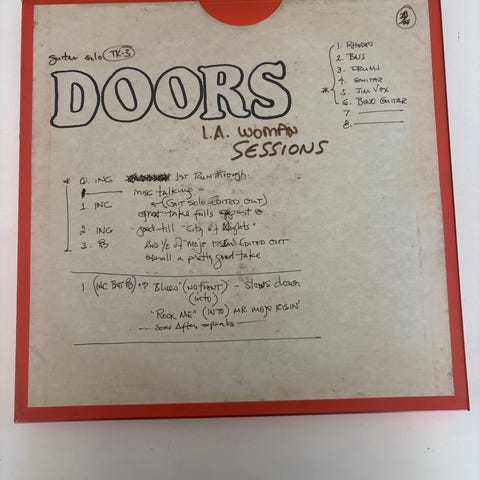 guitar solo TK-3
DOORS
L.A. WOMAN
SESSIONS
1. RHODES
2. BASS
3. DRUMS
4. GUITAR
* 5. JIM VOX
6. BEND GUITAR
7.
8.
* 0. ING 1ST Runthrough
misc talking -
1. INC ← (GIT SOLO EDITED OUT)
great take falls apart @
2. ING good till "City of Nights"
3. 2ND 1/2 of "MOJO RISIN' EDITED OUT
overall a pretty good take
1 "P Blues" (NO FRONT) - Slows down
(INTO)
"ROCK ME" (INTO) MR MOJO RISIN'
- some After -